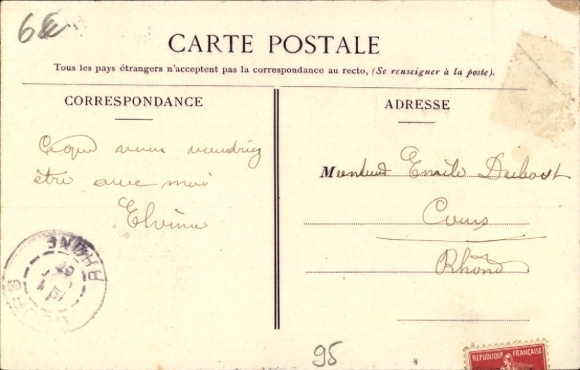 6€
CARTE POSTALE
Tous les pays étrangers n'acceptent pas la correspondance au recto, (Se renseigner à la poste).
CORRESPONDANCE
ADRESSE
vous voudriez
être avec moi
Elvina
Monsieur Emile
Cours
Rhône
RHONE
95
REPUBLIQUE FRANÇAISE